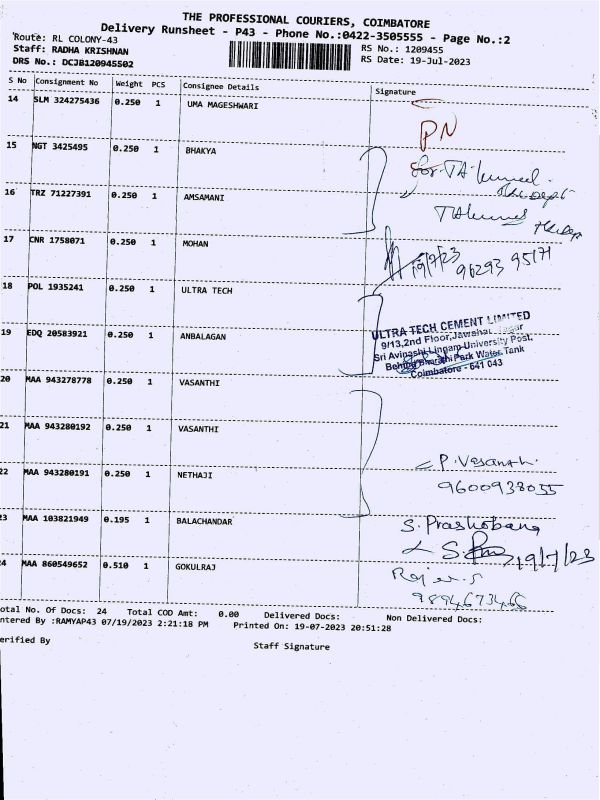 THE PROFESSIONAL COURIERS, COIMBATORE
Delivery Runsheet - P43 - Phone No.:0422-3505555 - Page No.:2
Route: RL COLONY-43
Staff: RADHA KRISHNAN
DRS No.: DCJB120945502
RS No.: 1209455
RS Date: 19-Jul-2023
S No Consignment No Weight PCS Consignee Details Signature
14 SLM 324275436 0.250 1 UMA MAGESHWARI
PN
15 NGT 3425495 0.250 1 BHAKYA
16 TRZ 71227391 0.250 1 AMSAMANI
17 CNR 1758071 0.250 1 MOHAN
19/7/23
96293 95171
18 POL 1935241 0.250 1 ULTRA TECH
19 EDQ 20583921 0.250 1 ANBALAGAN
ULTRA TECH CEMENT LIMITED
9/13,2nd Floor,Jawahar Nagar
Sri Avinashi Lingam University Post,
Behind Bharathi Park Water Tank
Coimbatore - 641 043
20 MAA 943278778 0.250 1 VASANTHI
21 MAA 943280192 0.250 1 VASANTHI
22 MAA 943280191 0.250 1 NETHAJI
P. Vasanth
9600938055
23 MAA 103821949 0.195 1 BALACHANDAR
S. Prashobana
19/7/23
24 MAA 860549652 0.510 1 GOKULRAJ
9894673466
otal No. Of Docs: 24 Total COD Amt: 0.00 Delivered Docs: Non Delivered Docs:
ntered By :RAMYAP43 07/19/2023 2:21:18 PM Printed On: 19-07-2023 20:51:28
erified By
Staff Signature